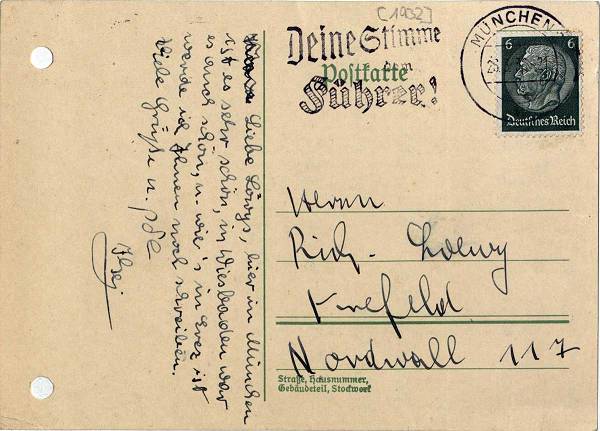 [1932]
Deine Stimme
dem
Führer!
Postkarte
MÜNCHEN
6 6
Deutsches Reich
Liebe Löwys, hier in München
ist es sehr schön, in Wiesbaden war
es auch schön, u. wie's in Ever ist
werde ich Ihnen noch schreiben.
Viele Grüße u.
Herrn
Rich. Loewy
Krefeld
Nordwall 117
Straße, Hausnummer,
Gebäudeteil, Stockwerk